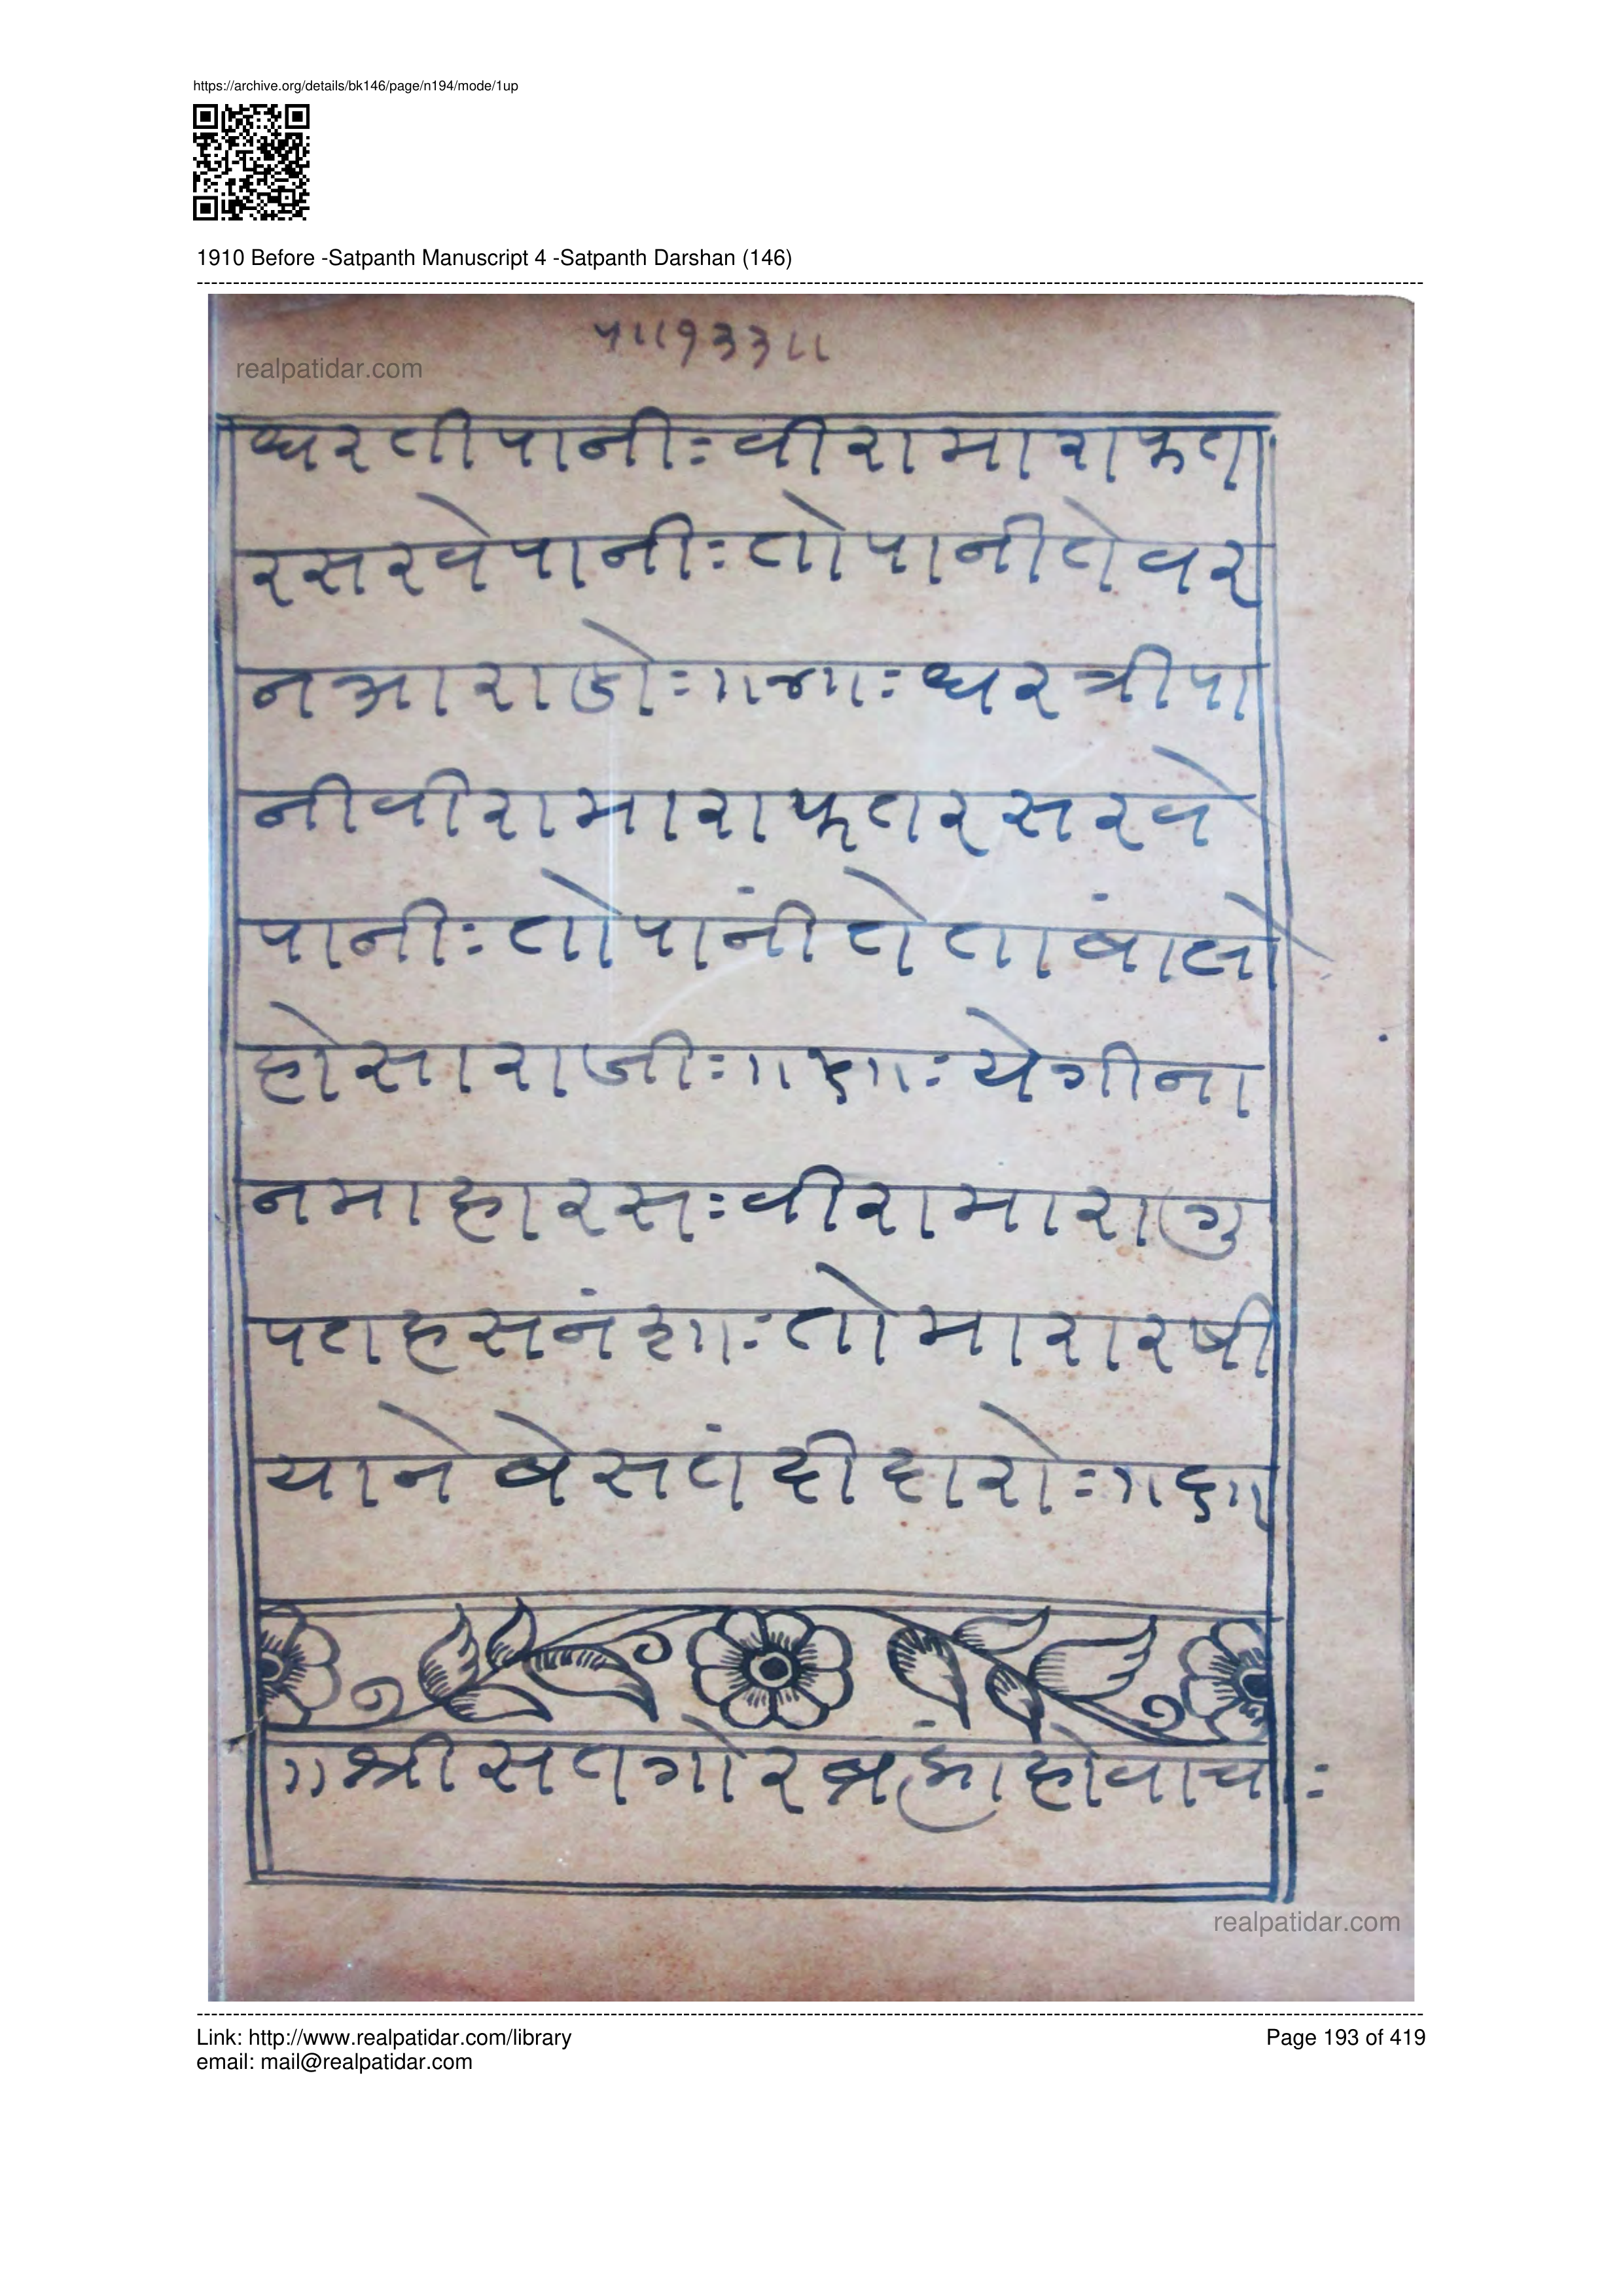 https://archive.org/details/bk146/page/n194/mode/1up
1910 Before -Satpanth Manuscript 4 -Satpanth Darshan (146)
५।।१३३।।
realpatidar.com
धरतीपानीः वीरामाराफत
रसरवेपानीः तोपानीतेवर
नआराजोः ॥४॥ः धरत्रीपा
नीवीरामाराफतरसरवे
पानीः तोपांनीतेताबांलो
होसाराजीः ॥५॥ः येगीना
नमाहारसः वीरामारागु
पतहसनंशाः तोमारारषी
यानेबेसतंदीदारोः ॥६॥
॥श्रीसतगोरब्रह्मांहोवाचः
realpatidar.com
Link: http://www.realpatidar.com/library
Page 193 of 419
email: mail@realpatidar.com